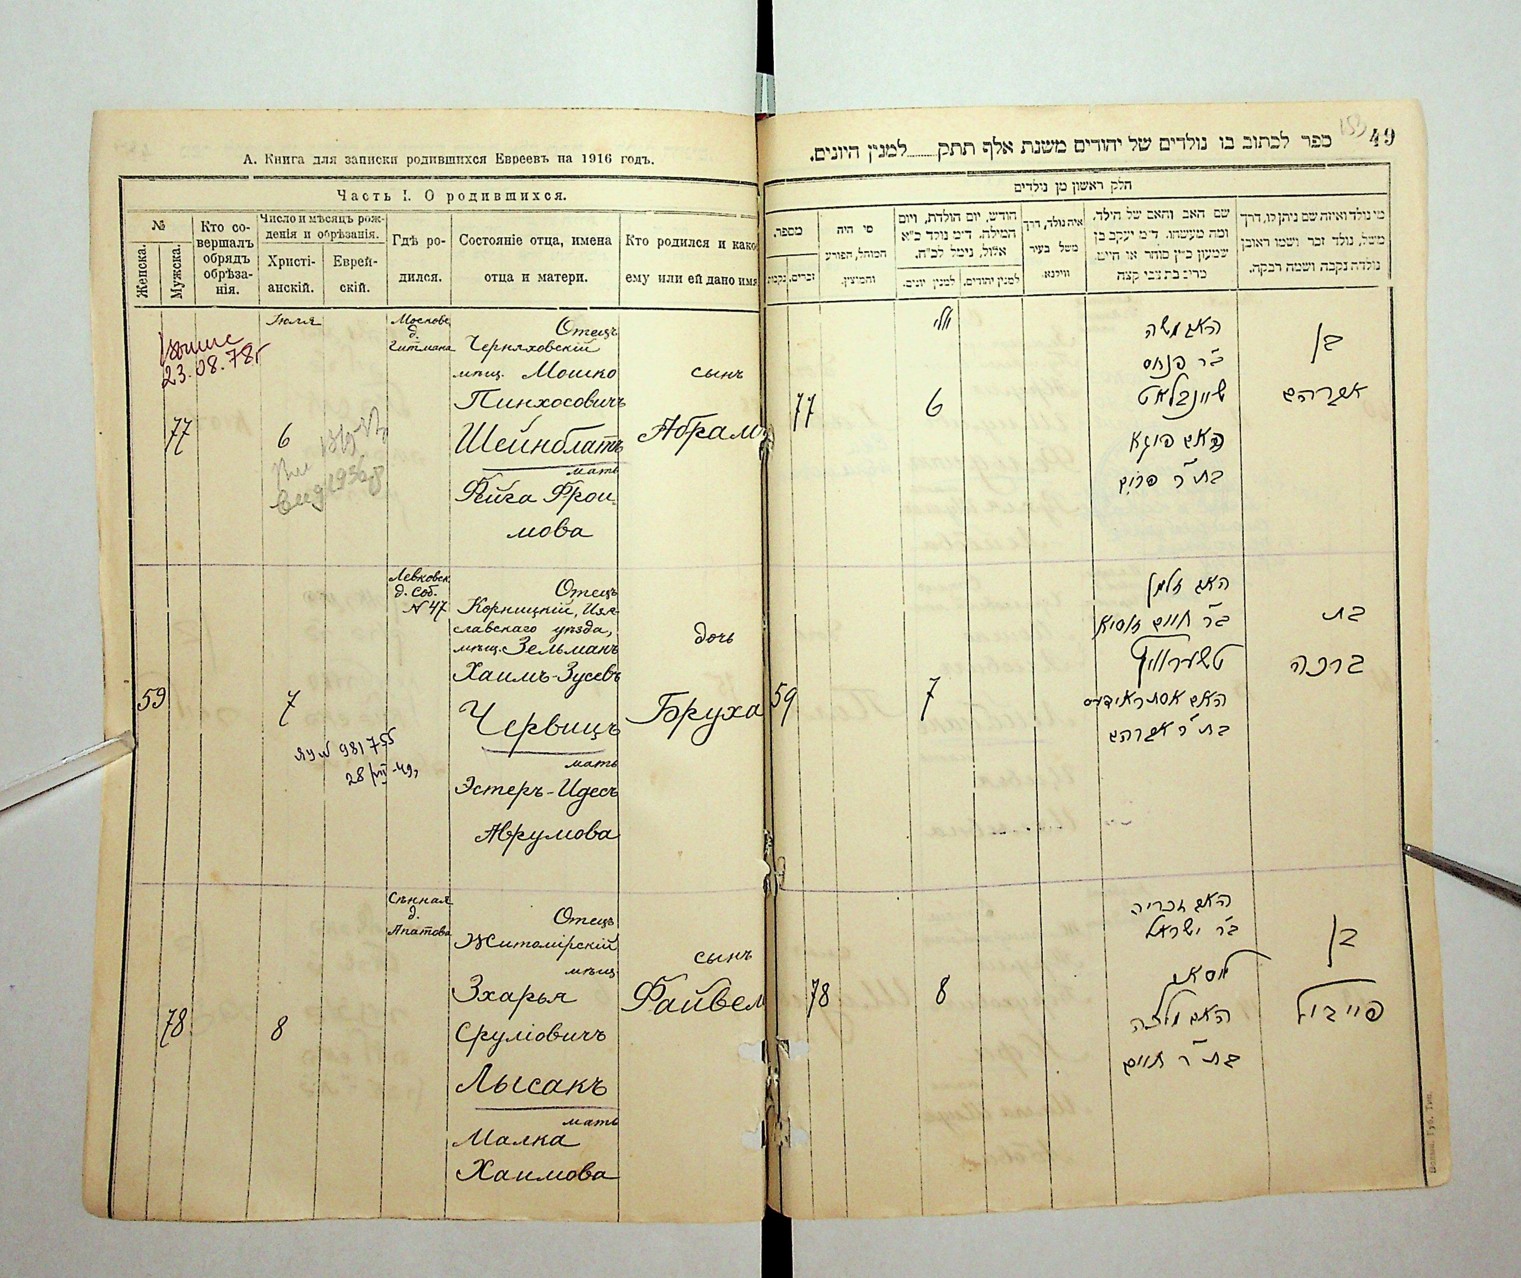 А. Книга для записки родившихся Евреевъ на 1916 годъ.
Часть I. О родившихся.
№
Женска.
Мужска.
Кто со-
вершалъ
обрядъ
обрѣза-
нія.
Число и мѣсяцъ рож-
денія и обрѣзанія.
Христі-
анскій.
Еврей-
скій.
Гдѣ ро-
дился.
Состояніе отца, имена
отца и матери.
Кто родился и како
ему или ей дано имя
23.08.78г
77
Іюля
6
Московс
д.
Гитмана
Отецъ
Черняховскій
мѣщ. Мошко
Пинхосовичъ
Шейнблатъ
мать
Фейга Фрои
мова
сынъ
Абрамъ
59
7
ЯУ № 981755
28/VII-49,
Левковск
д. соб.
№ 47
Отецъ
Корницкій, Изя-
славскаго уѣзда,
мѣщ. Зельманъ
Хаимъ-Зусевъ
Червицъ
мать
Эстеръ-Идесъ
Аврумова
дочь
Бруха
78
8
Сѣнная
д.
Апатова
Отецъ
Житомірскій
мѣщ.
Зхарья
Сруліовичъ
Лысакъ
мать
Малка
Хаимова
сынъ
Файвел
49
153
ספר לכתוב בו נולדים של יהודים משנת אלף תתק........למנין היונים.
חלק ראשון מן נולדים
מספר.
זכרים.
נקבות
מי היה
המוהל, הפורע
והמוצץ.
חודש, יום הולדת, ויום
המילה. ד״מ נולד כ״א
אלול, נימל לכ״ח.
למנין יונים.
למנין יהודים.
איה נולד, דרך
משל בעיר
ווילנא.
שם האב והאם של הילד,
ומה מעשהו. ד״מ יעקב בן
שמעון כ״ץ סוחר או חייט,
מרים בת צבי קצה
מי נולד ואיזה שם ניתן לו, דרך
משל, נולד זכר ושמו ראובן
נולדה נקבה ושמה רבקה.
77
יולי
6
האב משה
ב״ר פנחס
שיינבלאט
האם פיגא
בת ר׳ פרוים
בן
אברהם
59
7
האב זלמן
ב״ר חיים זוסיא
טשערוויץ
האם אסתר אידיס
בת ר׳ אברהם
בת
ברכה
78
8
האב זכריה
ב״ר ישראל
ליסאק
האם מלכה
בת ר׳ חיים
בן
פייבול